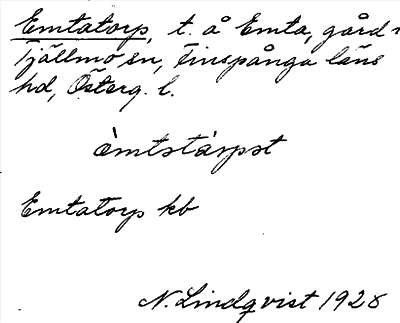 Emtatorp, t. å Emta, gård i
Tjällmo sn, Finspånga läns
hd, Österg. l.
èmtstárpst
Emtatorp kb
N. Lindqvist 1928